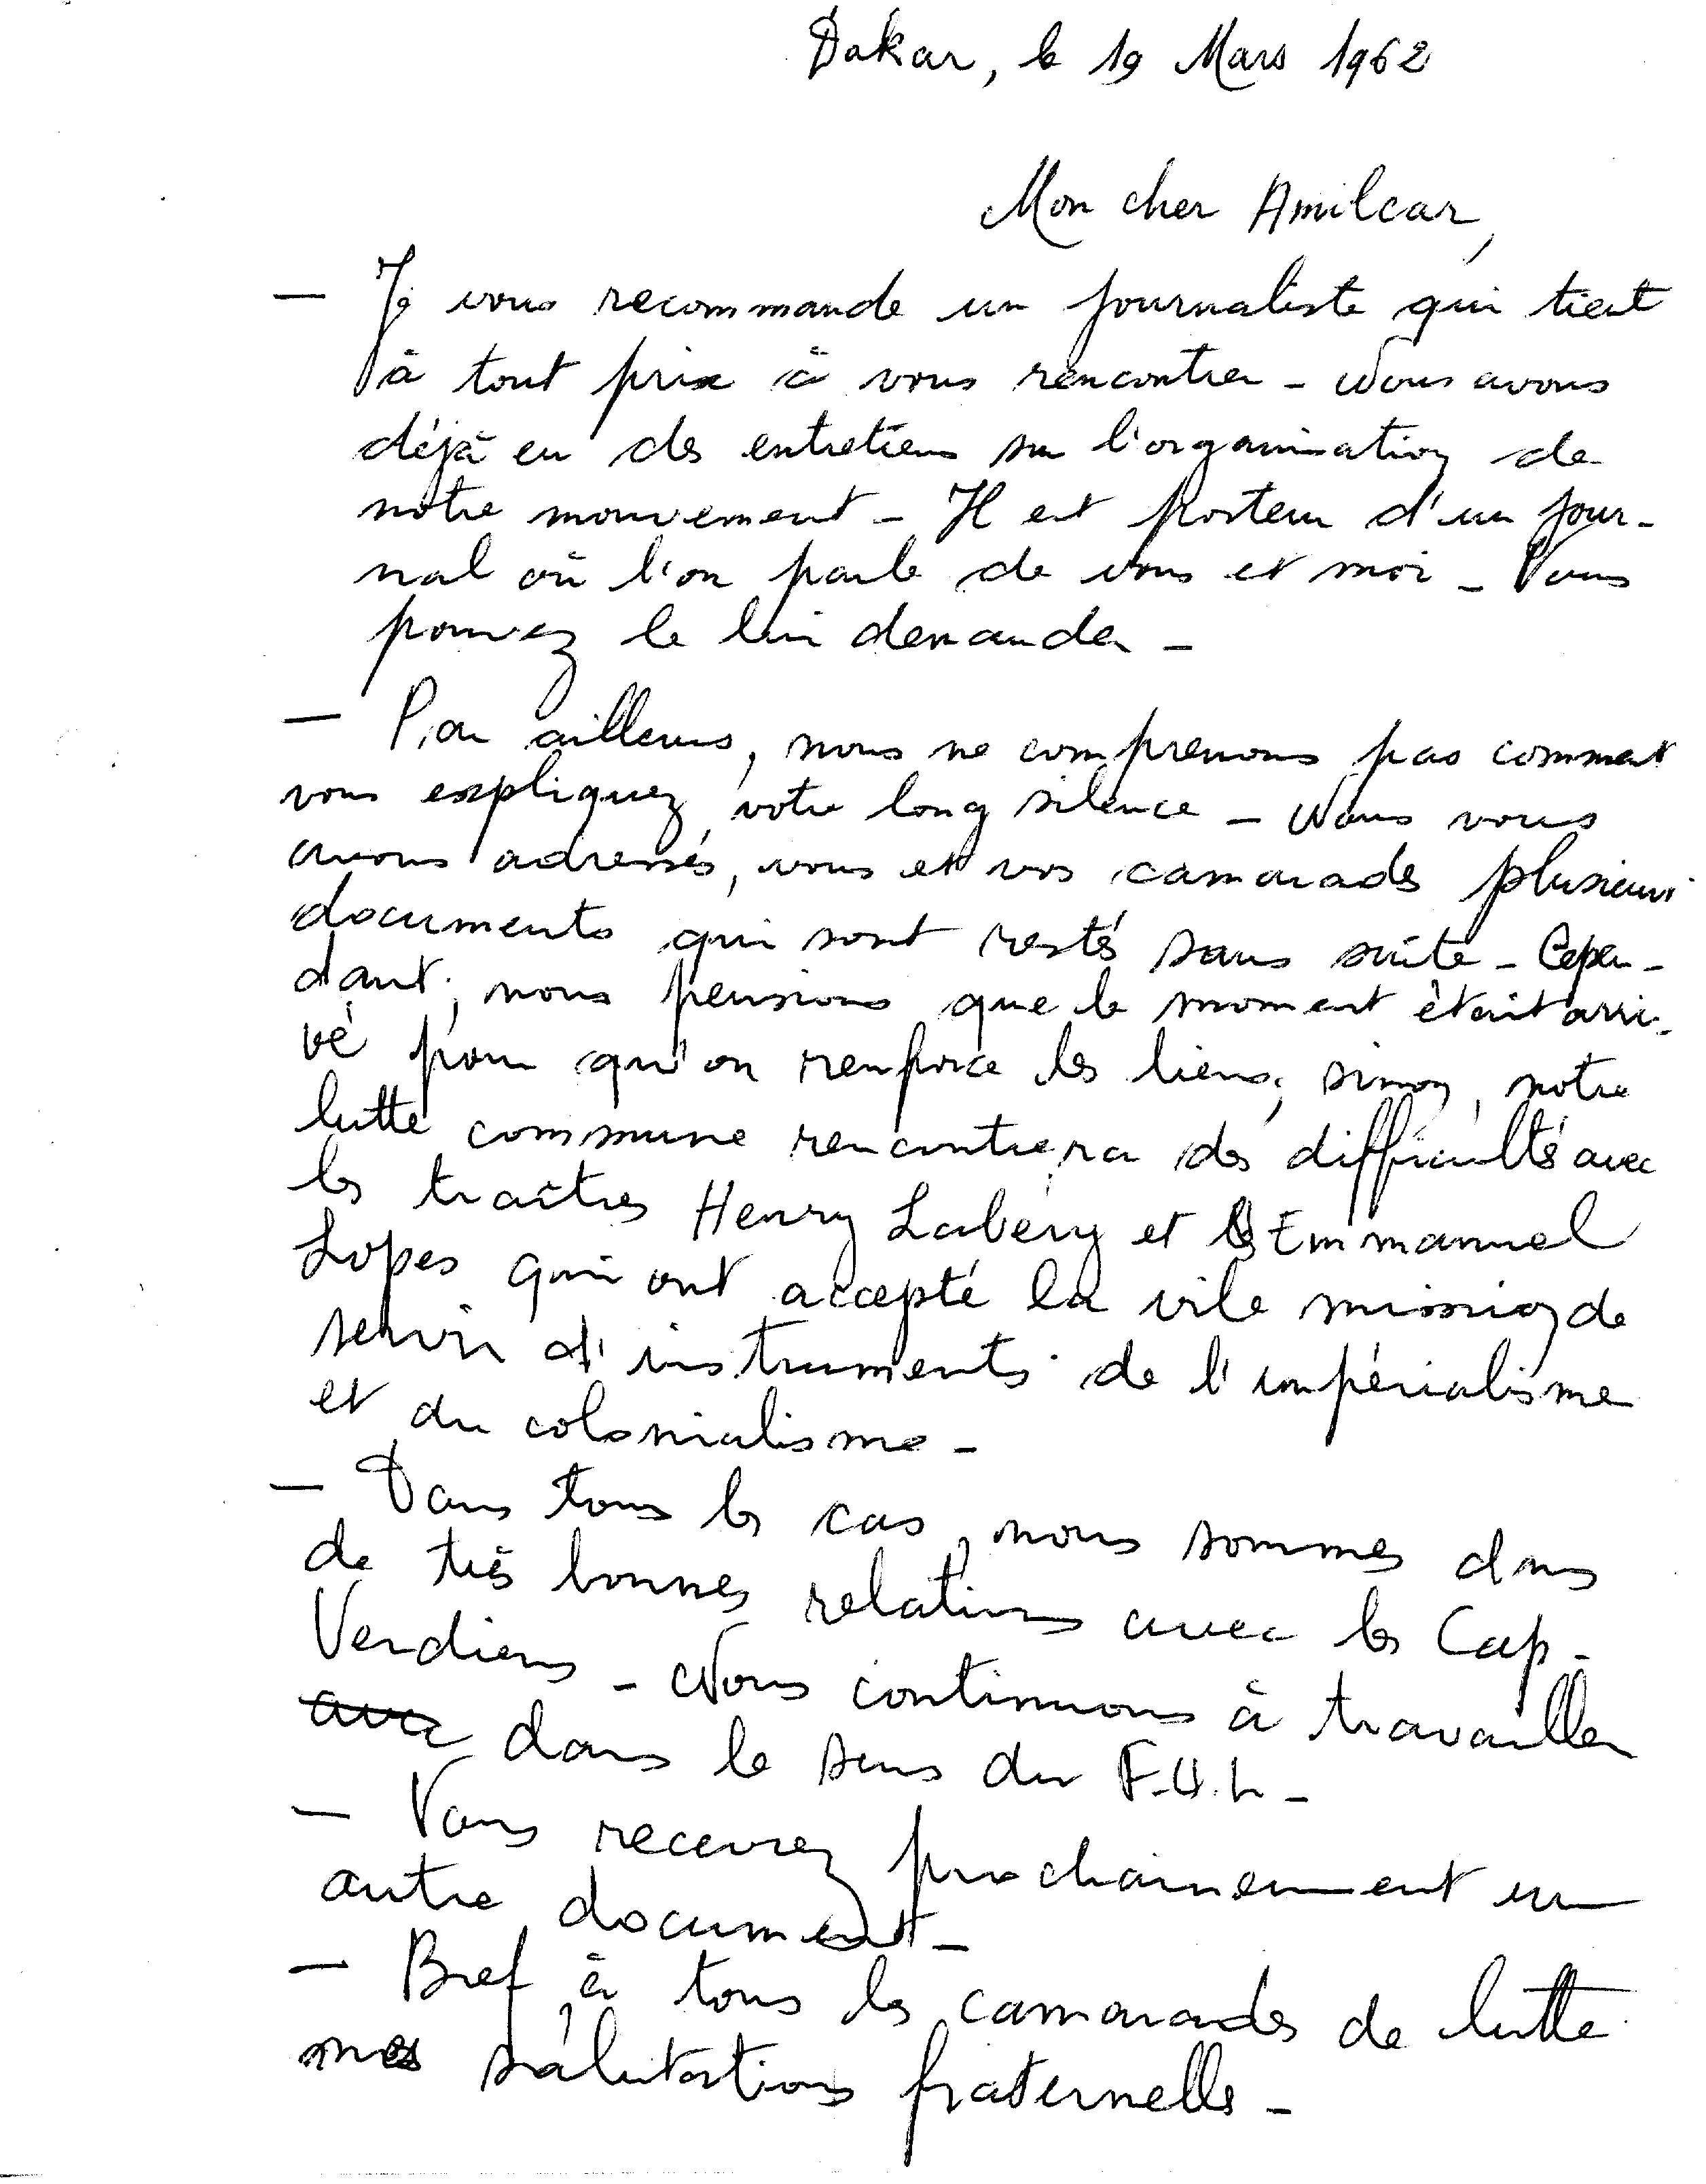 Dakar, le 19 Mars 1962
Mon cher Amilcar,
— Je vous recommande un journaliste qui tient
à tout prix à vous rencontrer - Nous avons
déjà eu des entretiens sur l'organisation de
notre mouvement - Il est porteur d'un jour-
nal où l'on parle de vous et moi - Vous
pouvez le lui demander -
— Par ailleurs, nous ne comprenons pas comment
vous expliquez votre long silence - Nous vous
avons adressés, vous et vos camarades plusieurs
documents qui sont restés sans suite - Cepen-
dant, nous pensions que le moment était arri-
vé pour qu'on renforce les liens, sinon, notre
lutte commune rencontrera des difficultés avec
les traîtres Henry Labery et Emmanuel
Lopes qui ont accepté la vile mission de
servir d'instruments de l'impérialisme
et du colonialisme -
— Dans tous les cas, nous sommes dans
de très bonnes relations avec les Cap-
Verdiens - Nous continuons à travailler
avec dans le sens du F.U.L -
— Vous recevrez prochainement un
autre document -
— Bref, à tous les camarades de lutte
mes salutations fraternelles -